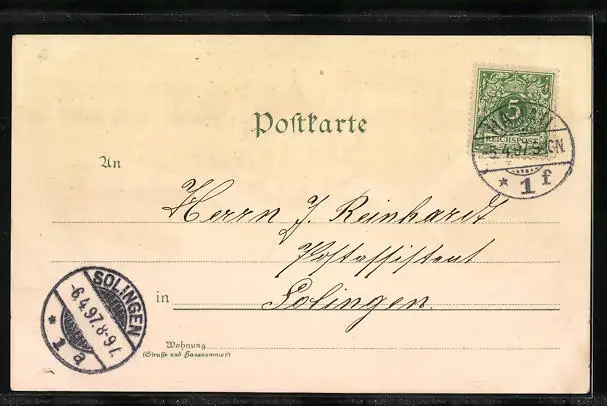 Postkarte
5
REICHSPOST
5.4.97. 5-6N
* 1 f
An
Herrn J. Reinhardt
Postassistent
in Solingen.
Wohnung
(Straße und Hausnummer)
SOLINGEN
6.4.97. 8-9 V.
* 1 a